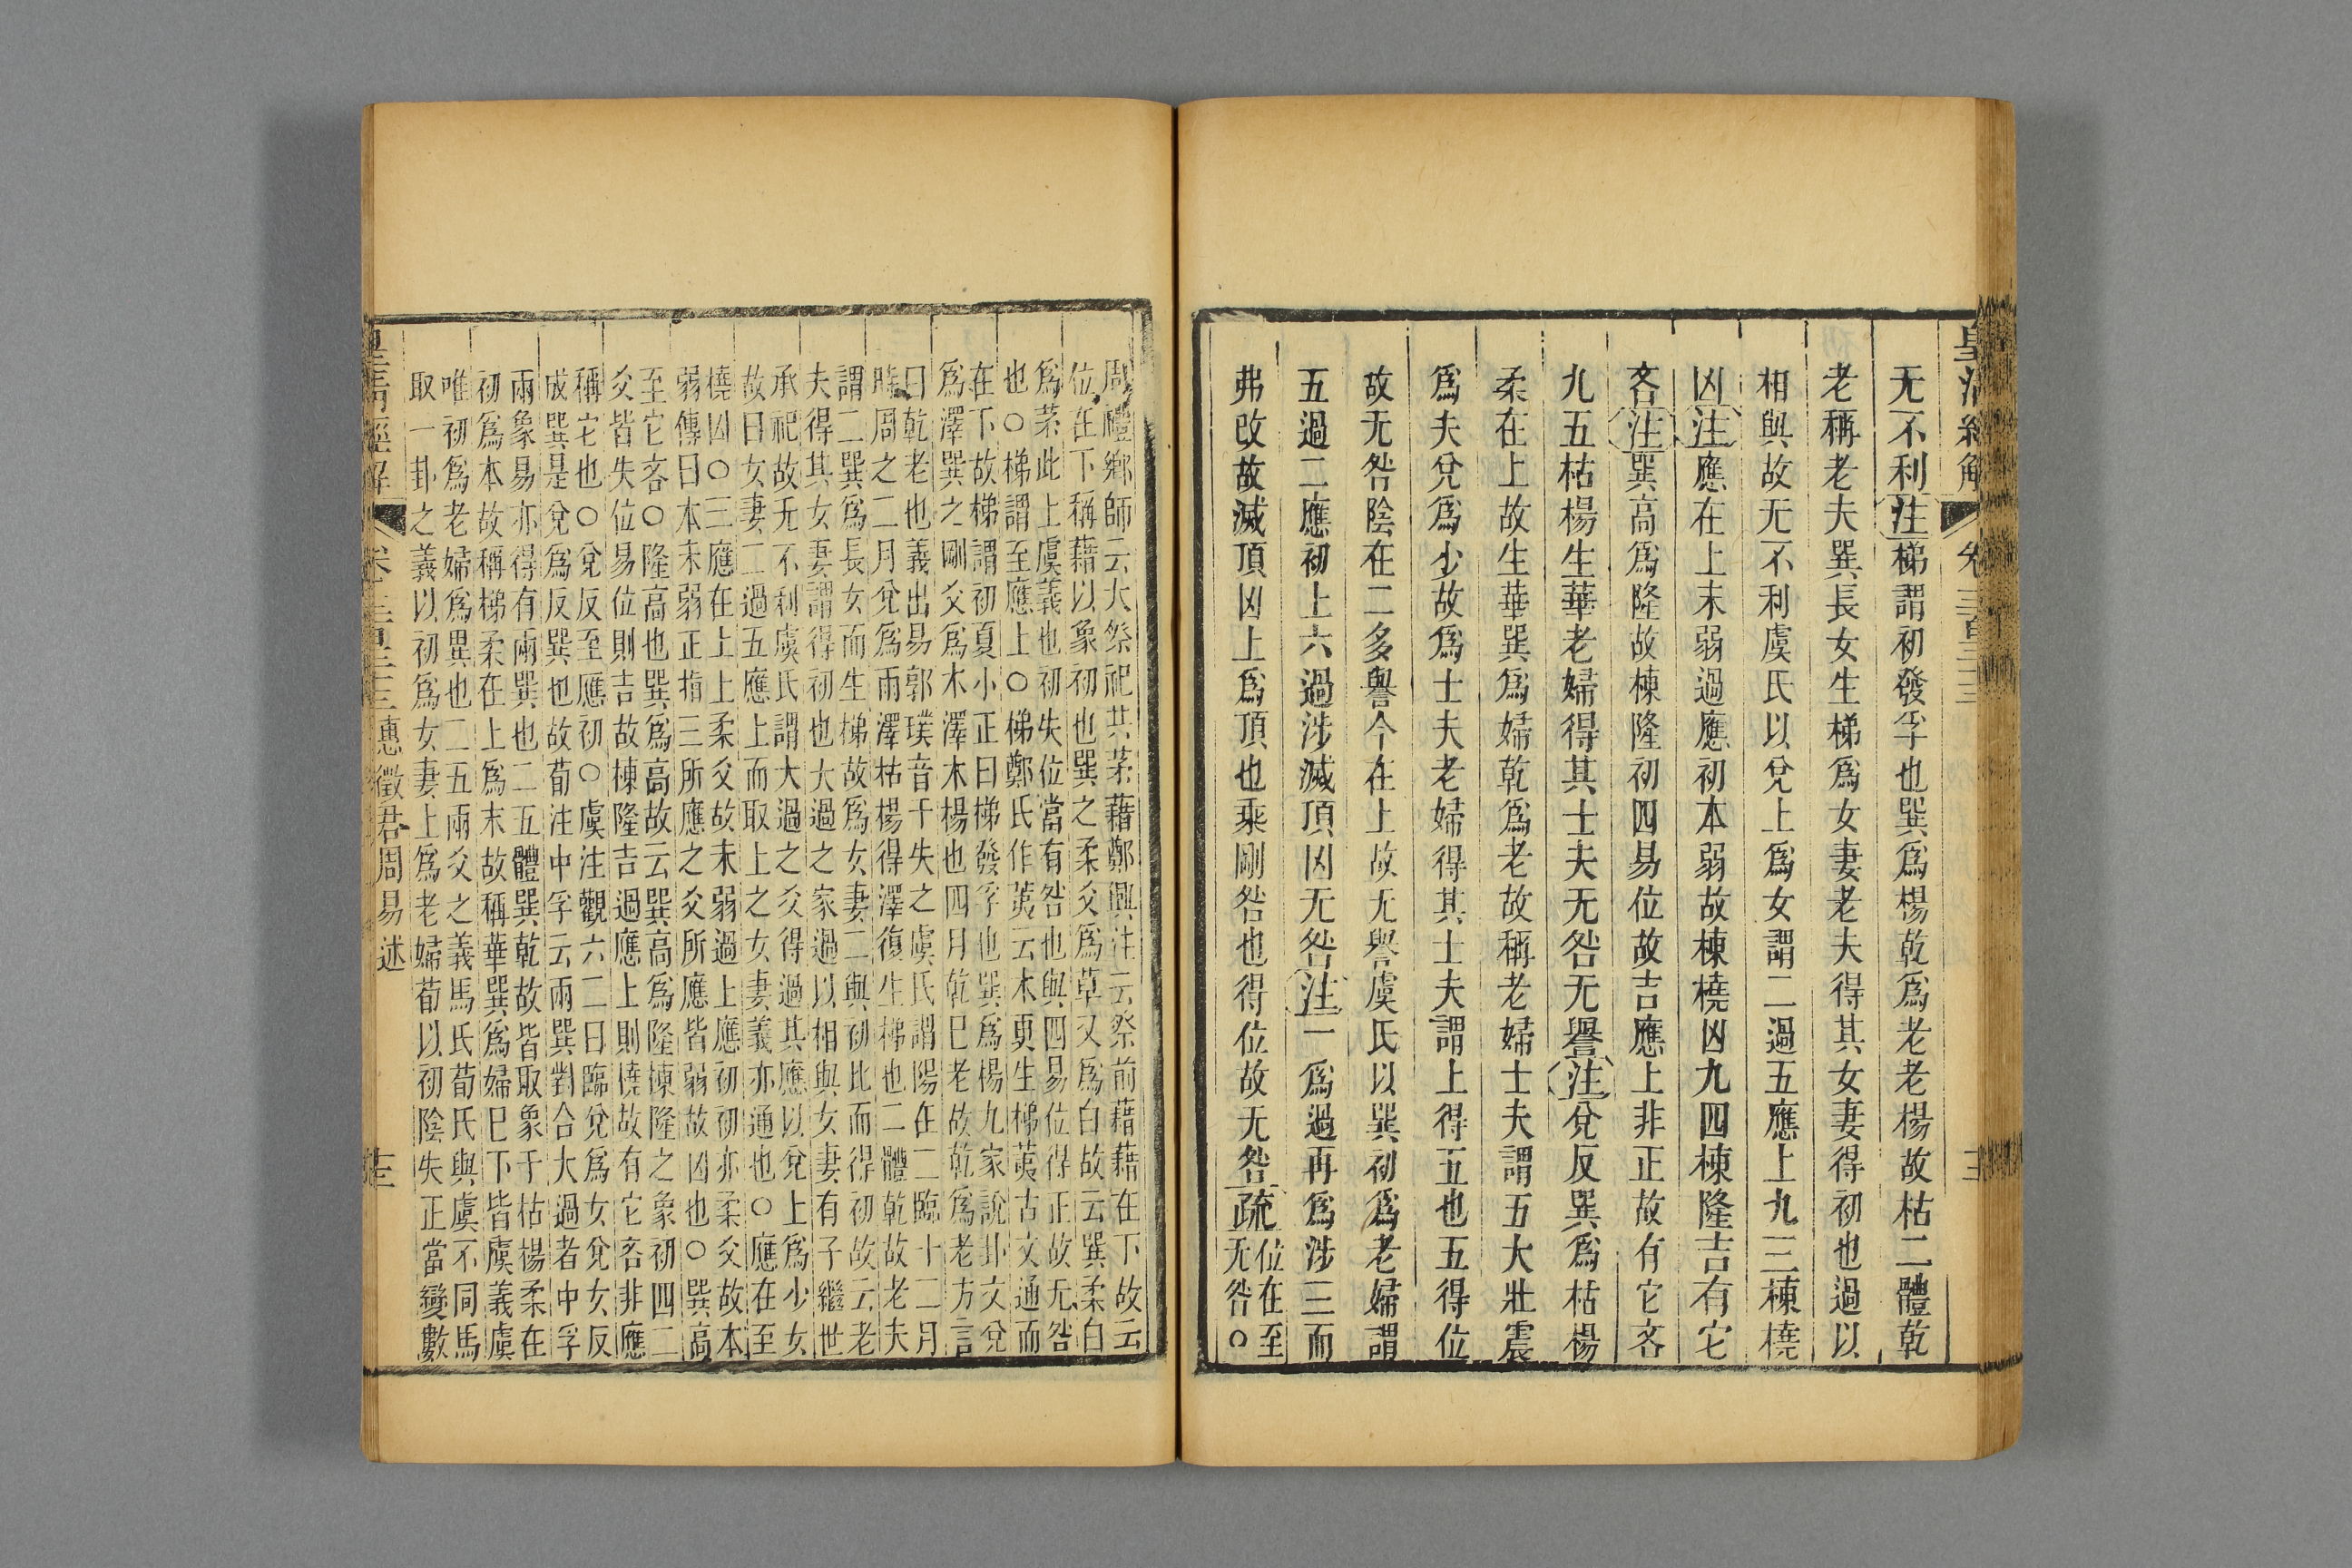 无不利注稊謂初發孚也巽爲楊乾爲老老楊故枯二體乾
老稱老夫巽長女生稊爲女妻老夫得其女妻得初也過以
相與故无不利虞氏以兌上爲女謂二過五應上九三棟橈
凶注應在上末弱過應初本弱故棟橈凶九四棟隆吉有它
吝注巽高爲隆故棟隆初四易位故吉應上非正故有它吝
九五枯楊生華老婦得其士夫无咎无譽注兌反巽爲枯楊
柔在上故生華巽爲婦乾爲老故稱老婦士夫謂五大壯震
爲夫兌爲少故爲士夫老婦得其士夫謂上得五也五得位
故无咎陰在二多譽今在上故无譽虞氏以巽初爲老婦謂
五過二應初上六過涉滅頂凶无咎注一爲過再爲涉三而
弗改故滅頂凶上爲頂也乘剛咎也得位故无咎疏位在至
无咎○
周禮鄉師云大祭祀共茅藉鄭興注云祭前藉藉在下故云
位在下稱藉以象初也巽之柔爻爲草又爲白故云巽柔白
爲茅此上虞義也初失位當有咎也與四易位得正故无咎
也○稊謂至應上○稊鄭氏作荑云木更生稊荑古文通而
在下故稊謂初夏小正曰稊發孚也巽爲楊九家說卦文兌
爲澤巽之剛爻爲木澤木楊也四月乾巳老故乾爲老方言
曰乾老也義出易郭璞音干失之虞氏謂陽在二臨十二月
時周之二月兌爲雨澤枯楊得澤復生稊也二體乾故老夫
謂二巽爲長女而生稊故爲女妻二與初比而得初故云老
夫得其女妻謂得初也大過之家過以相與女妻有子繼世
承祀故无不利虞氏謂大過之爻得過其應以兌上爲少女
故曰女妻二過五應上而取上之女妻義亦通也○應在至
橈凶○三應在上上柔爻故末弱過上應初初亦柔爻故本
弱傳曰本末弱正指三所應之爻所應皆弱故凶也○巽高
至它吝○隆高也巽爲高故云巽高爲隆棟隆之象初四二
爻皆失位易位則吉故棟隆吉過應上則橈故有它吝非應
稱它也○兌反至應初○虞注觀六二曰臨兌爲女兌女反
成巽是兌爲反巽也故荀注中孚云兩巽對合大過者中孚
兩象易亦得有兩巽也二五體巽乾故皆取象于枯楊柔在
初爲本故稱稊柔在上爲末故稱華巽爲婦巳下皆虞義虞
唯初爲老婦爲異也二五兩爻之義馬氏荀氏與虞不同馬
取一卦之義以初爲女妻上爲老婦荀以初陰失正當變數
皇清經解 卷三百三十三惠徵君周易述 十三